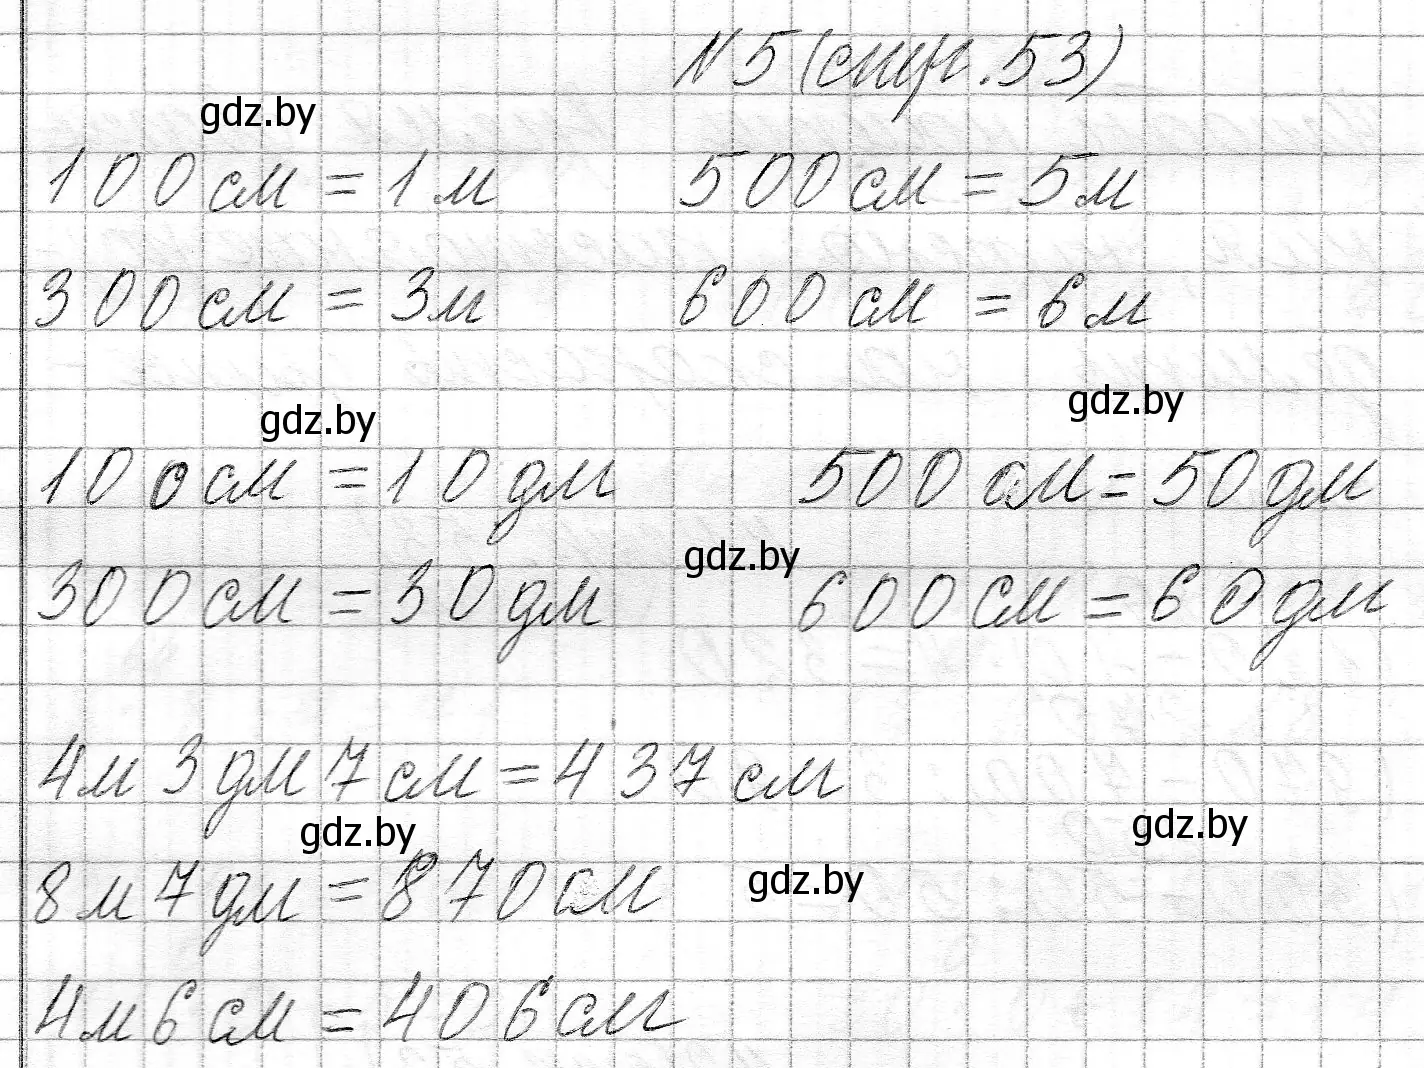 №5 (стр. 53)
gdz.by
100 см = 1 м 500 см = 5 м
300 см = 3 м 600 см = 6 м
gdz.by gdz.by
100 см = 10 дм 500 см = 50 дм
gdz.by
300 см = 30 дм 600 см = 60 дм
4 м 3 дм 7 см = 437 см
gdz.by gdz.by
8 м 7 дм = 870 см
gdz.by
4 м 6 см = 406 см